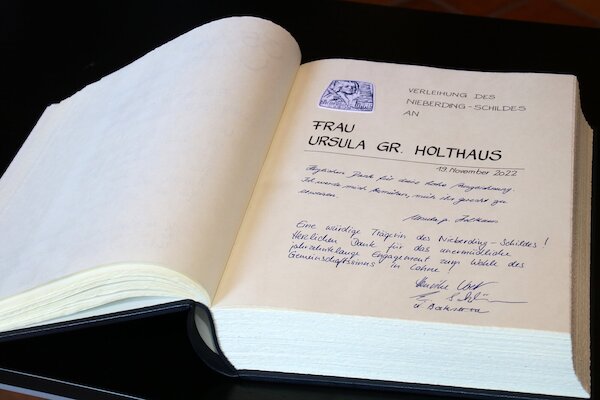 VERLEIHUNG DES
NIEBERDING-SCHILDES
AN
FRAU
URSULA GR. HOLTHAUS
19. November 2022
Herzlichen Dank für diese hohe Auszeichnung.
Ich werde mich bemühen, mich ihr gerecht zu
erweisen.
Ursula gr. Holthaus
Eine würdige Trägerin des Nieberding-Schildes!
Herzlichen Dank für das unermüdliche
jahrzehntelange Engagement zum Wohle des
Gemeinschaftssinns in Lohne!